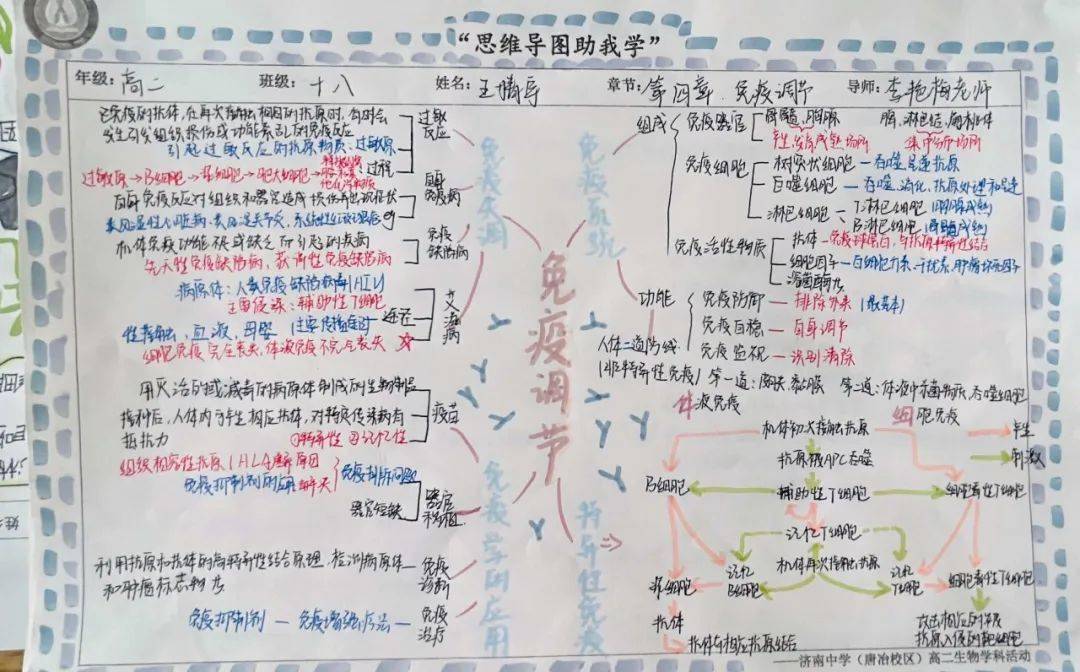 “思维导图助我学”
年级：高二 班级：十八 姓名：王腾 章节：第四章 免疫调节 导师：李艳梅老师
免疫调节
免疫失调
过敏反应
已免疫的机体，在再次接触相同的抗原时，有时会
发生引发组织损伤或功能紊乱的免疫反应
引起过敏反应的抗原物质：过敏原
过敏原→B细胞→浆细胞→肥大细胞→
过程
自身免疫病
自身免疫反应对组织和器官造成损伤并出现症状
类风湿性关节炎，系统性红斑狼疮
免疫缺陷病
机体免疫功能不足或缺乏而引起的疾病
先天性免疫缺陷病，获得性免疫缺陷病
艾滋病
病原体：人类免疫缺陷病毒（HIV）
主要侵染：辅助性T细胞
性接触，血液，母婴（主要传播途径）
细胞免疫完全丧失，体液免疫不完全丧失
免疫学的应用
疫苗
用灭活的或减毒的病原体制成的生物制品
接种后，人体内可产生相应抗体，对特定传染病有
抵抗力
①特异性 ②记忆性
器官移植
组织相容性抗原（HLA）
免疫排斥问题
器官短缺
免疫诊断
利用抗原和抗体的高特异性结合原理，检测病原体
和肿瘤标志物
免疫治疗
免疫抑制剂 — 免疫增强疗法
免疫系统
组成
免疫器官
骨髓，胸腺
脾，淋巴结，扁桃体
集中分布场所
免疫细胞
树突状细胞—吞噬，呈递抗原
巨噬细胞—吞噬，消化，抗原处理和呈递
淋巴细胞
T淋巴细胞（胸腺成熟）
B淋巴细胞（骨髓成熟）
免疫活性物质
抗体—免疫球蛋白，与抗原特异性结合
细胞因子—白细胞介素，干扰素，肿瘤坏死因子
溶菌酶
功能
免疫防御—排除外来（最基本）
免疫自稳—自身调节
免疫监视—识别清除
人体二道防线
（非特异性免疫）
第一道：皮肤，黏膜 第二道：体液中杀菌物质，吞噬细胞
特异性免疫
体液免疫
细胞免疫
机体初次接触抗原
产生
抗原被APC吞噬
刺激
B细胞
辅助性T细胞
细胞毒性T细胞
记忆T细胞
浆细胞
记忆B细胞
机体再次接触抗原
记忆T细胞
细胞毒性T细胞
抗体
抗体与相应抗原结合
抗原入侵的靶细胞
——济南中学（唐冶校区）高二生物学科活动